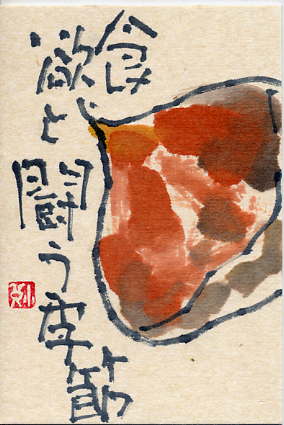 食欲と闘う季節